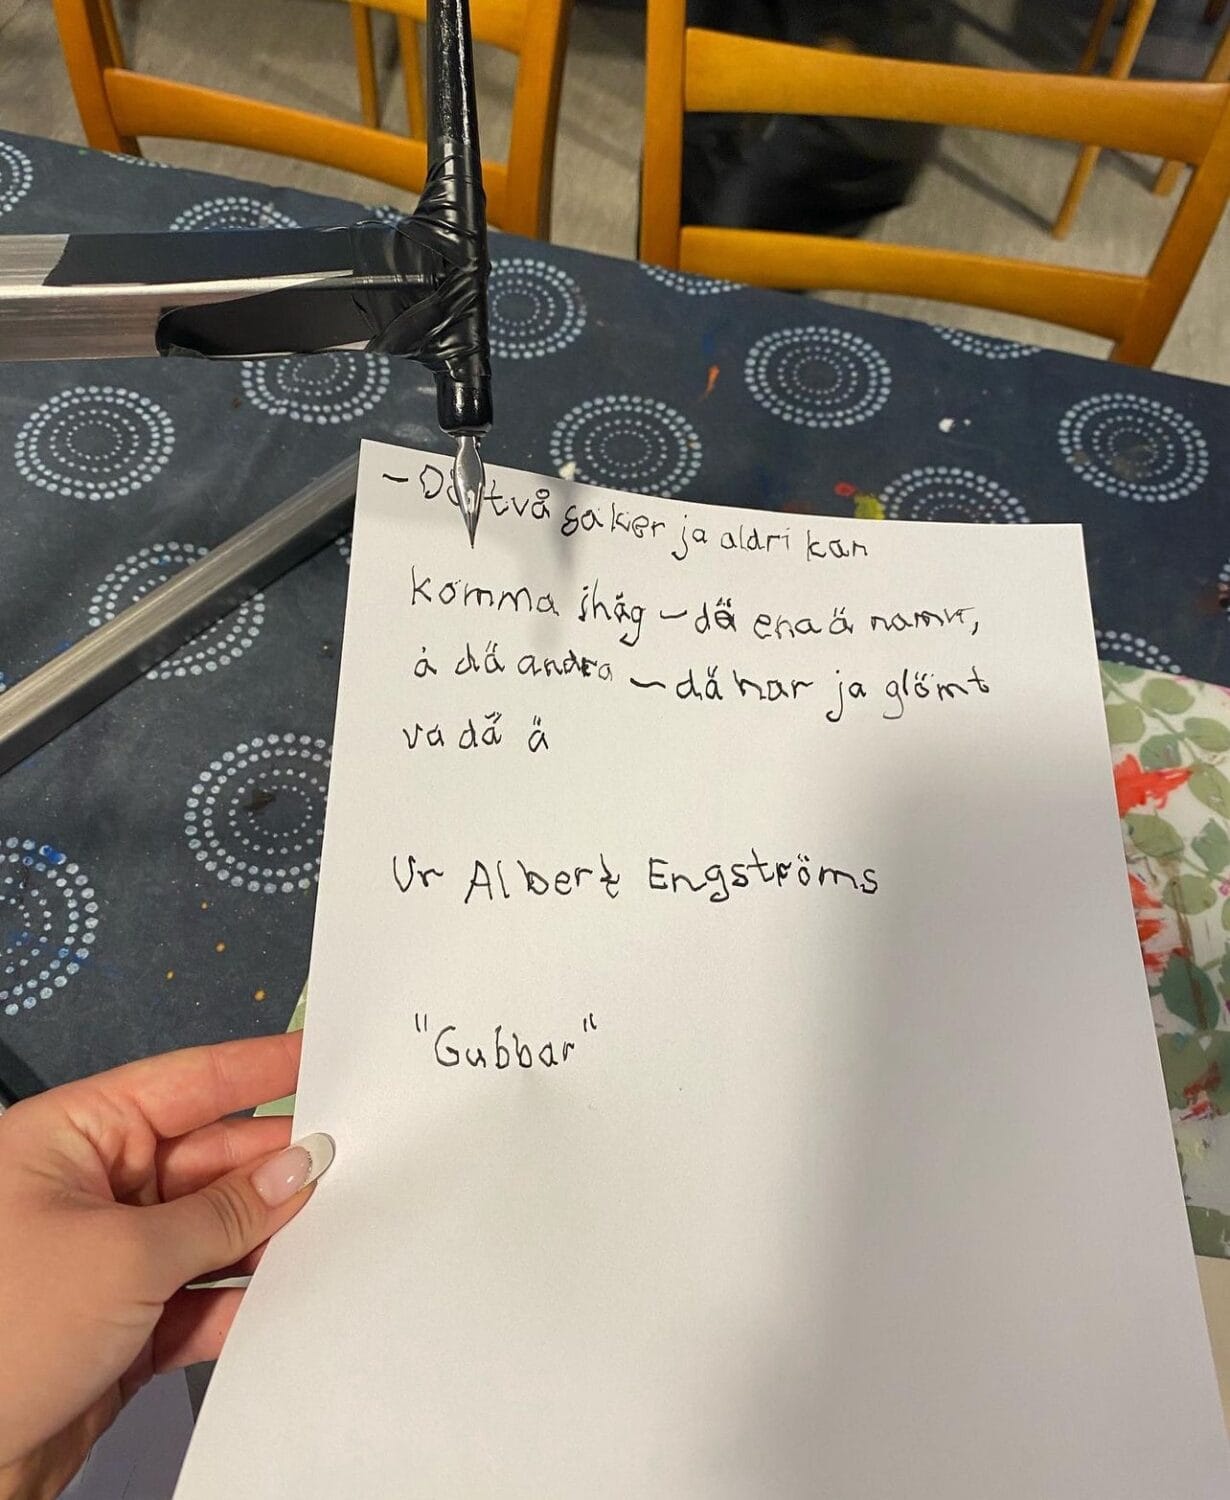 - Dä två saker ja aldri kan
komma ihåg - dä ena ä namn,
å dä andra - dä har ja glömt
va dä ä
Ur Albert Engströms
"Gubbar"